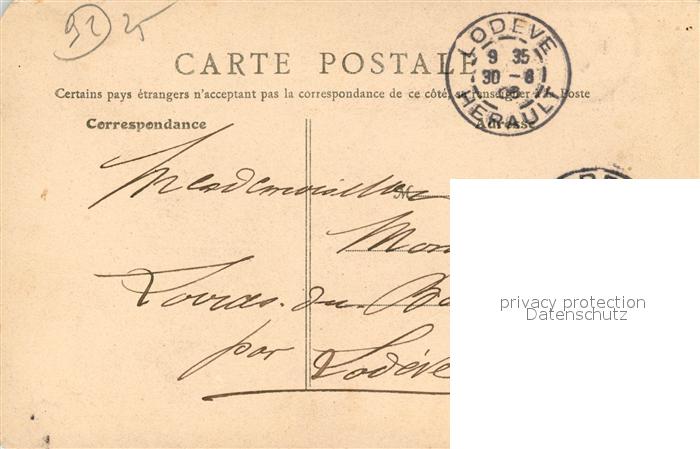 92 25
CARTE POSTALE
LODEVE
9 35
30 - 8
08
HERAULT
Certains pays étrangers n'acceptant pas la correspondance de ce côté, se renseigner à la Poste
Correspondance
Adresse
Mademoiselle
M
Mon
du
par Lodève
privacy protection
Datenschutz